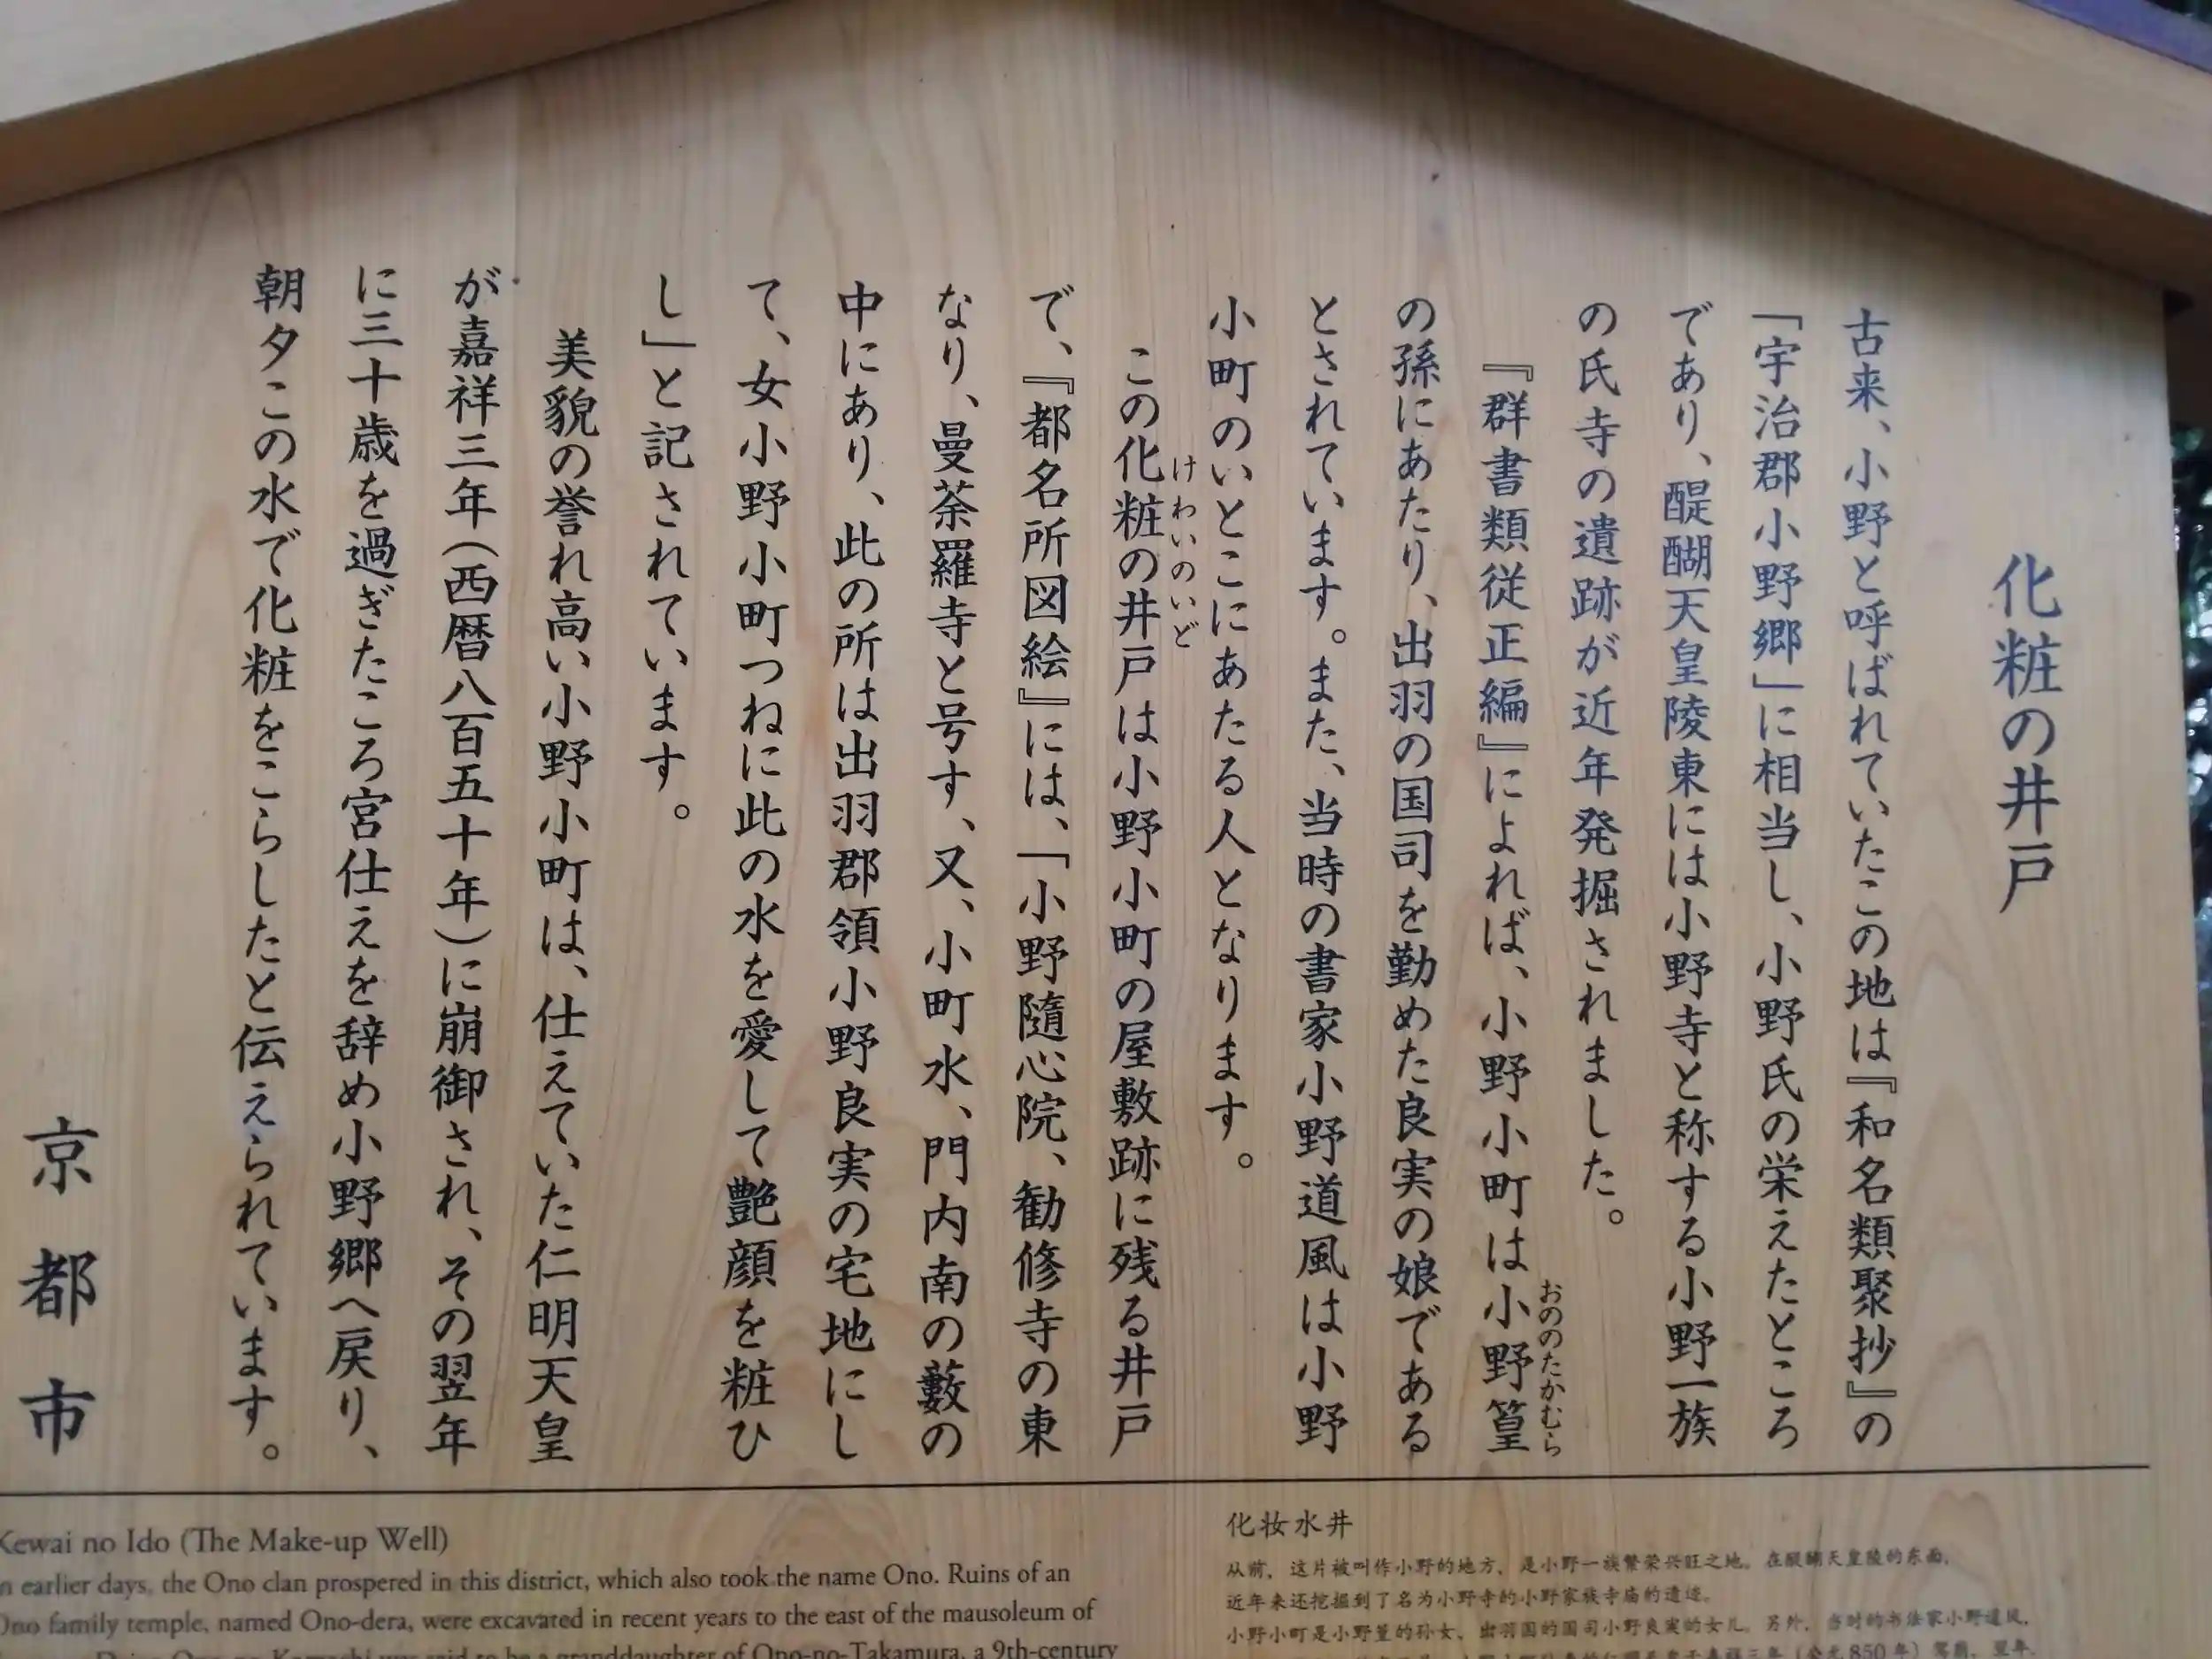 化粧の井戸
古来、小野と呼ばれていたこの地は『和名類聚抄』の
「宇治郡小野郷」に相当し、小野氏の栄えたところ
であり、醍醐天皇陵東には小野寺と称する小野一族
の氏寺の遺跡が近年発掘されました。
『群書類従正編』によれば、小野小町は小野篁
おののたかむら
の孫にあたり、出羽の国司を勤めた良実の娘である
とされています。また、当時の書家小野道風は小野
小町のいとこにあたる人となります。
この化粧の井戸は小野小町の屋敷跡に残る井戸
けわいのいど
で、『都名所図絵』には、「小野隨心院、勧修寺の東
なり、曼荼羅寺と号す、又、小町水、門内南の藪の
中にあり、此の所は出羽郡領小野良実の宅地にし
て、女小野小町つねに此の水を愛して艶顔を粧ひ
し」と記されています。
美貌の誉れ高い小野小町は、仕えていた仁明天皇
が嘉祥三年(西暦八百五十年)に崩御され、その翌年
に三十歳を過ぎたころ宮仕えを辞め小野郷へ戻り、
朝夕この水で化粧をこらしたと伝えられています。
京都市
Kewai no Ido (The Make-up Well)
n earlier days, the Ono clan prospered in this district, which also took the name Ono. Ruins of an
Ono family temple, named Ono-dera, were excavated in recent years to the east of the mausoleum of
Ono-no-Komachi was said to be a granddaughter of Ono-no-Takamura, a 9th-century
化妆水井
从前，这片被叫作小野的地方，是小野一族繁荣兴旺之地。在醍醐天皇陵的东面，
近年来还挖掘到了名为小野寺的小野家族寺庙的遗迹。
小野小町是小野篁的孙女、出羽国的国司小野良実的女儿。另外，当时的书法家小野道风，